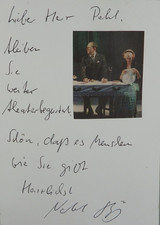 Liebe Herr Pehl,
bleiben
Sie
weiter
theaterbegeistert
Schön, daß es Menschen
wie Sie gibt
Herzlichst